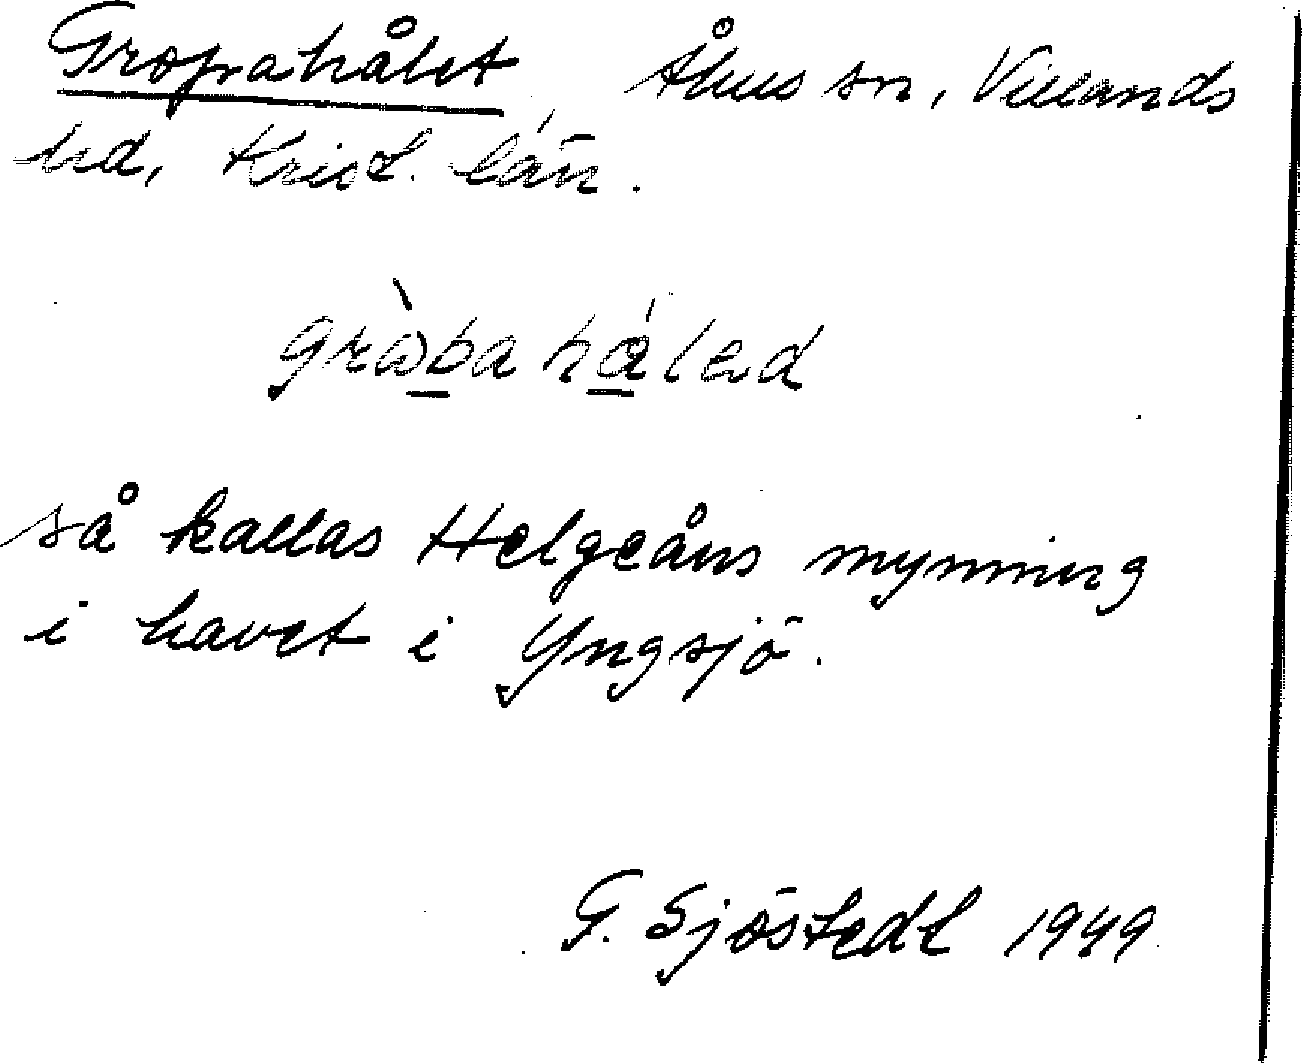 Gropahålet, Åhus sn, Villands
hd, Krist. län.
gròba håled
så kallas Helgeåns mynning
i havet i Yngsjö.
G. Sjöstedt 1949